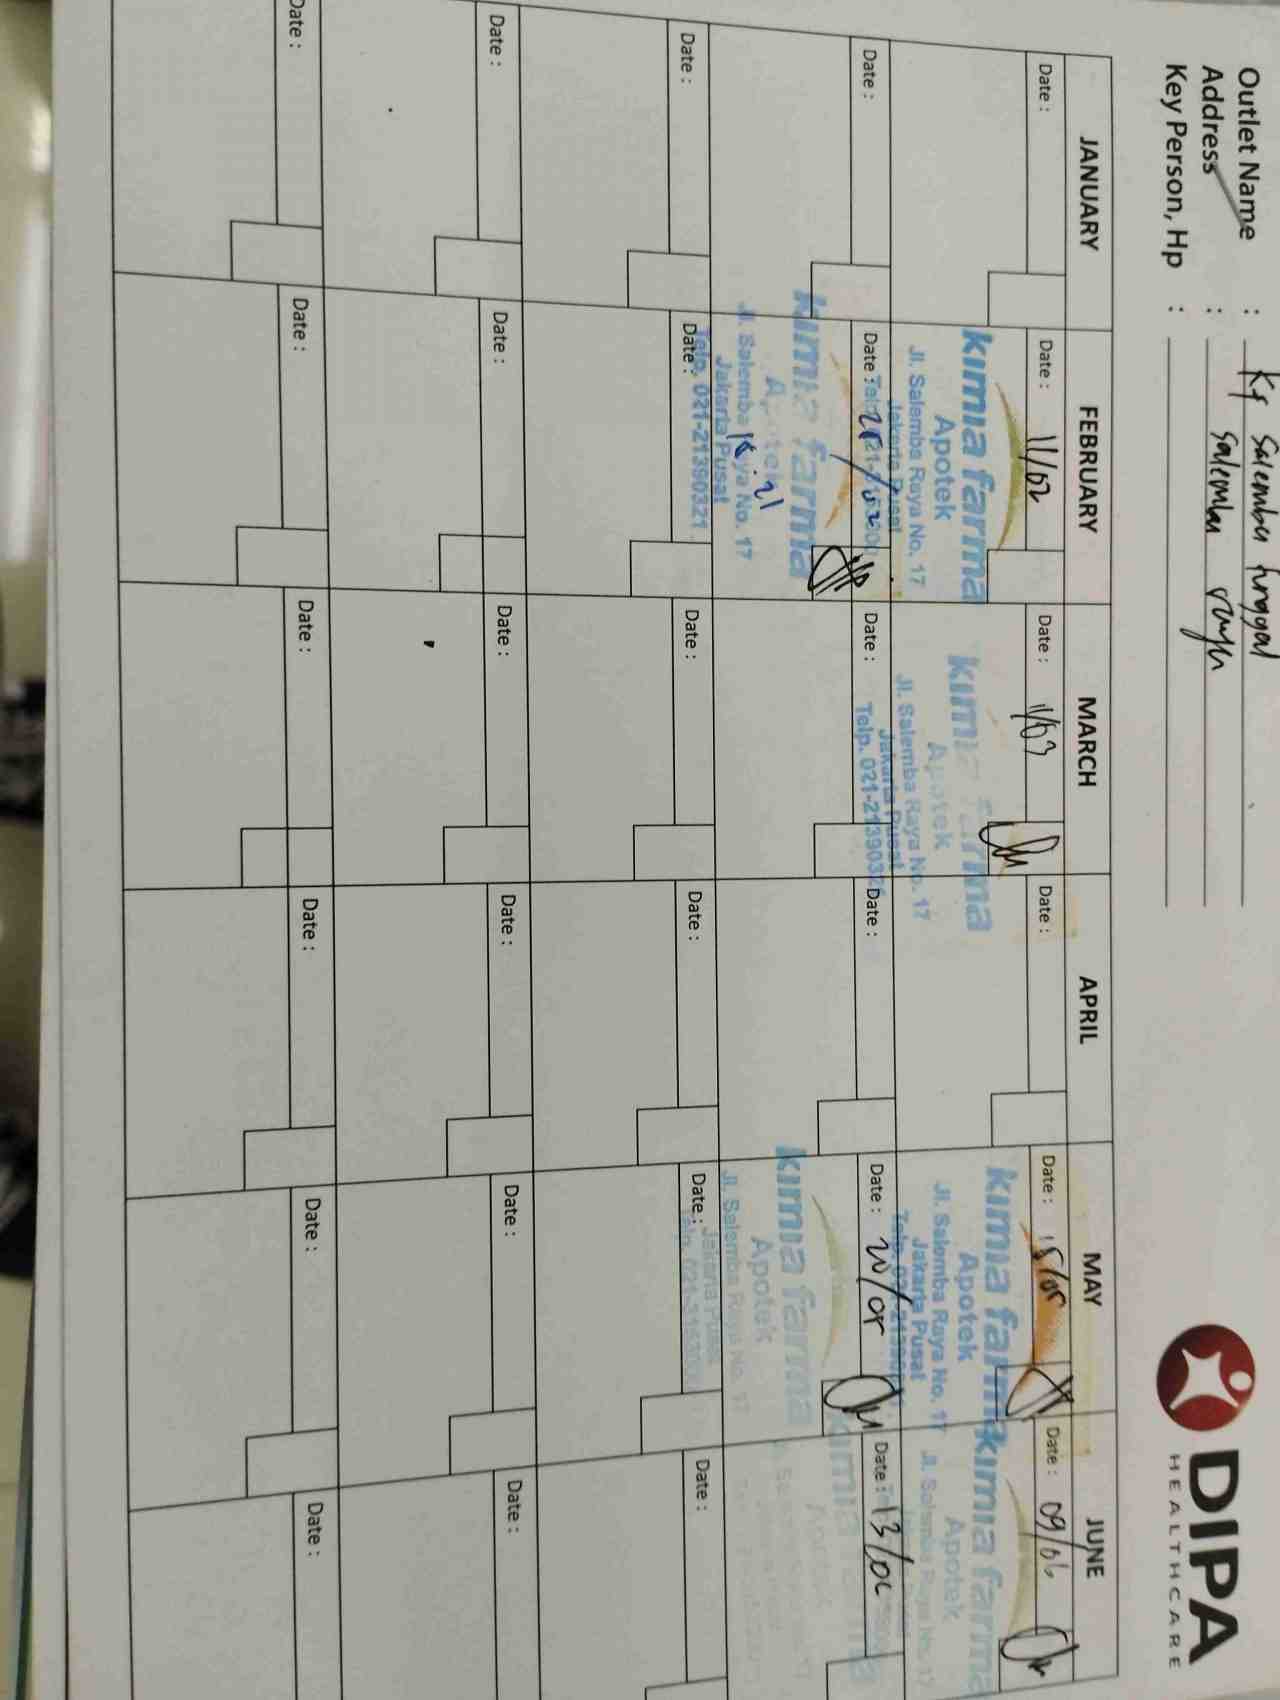 DIPA
HEALTHCARE
Outlet Name : Kf Salemba tunggal
Address : Salemba raya
Key Person, Hp :
JANUARY FEBRUARY MARCH APRIL MAY JUNE
Date : Date : 11/02 Date : 11/03 Date : Date : 15/05 Date : 09/06
kimia farma kimia farma kimia farma kimia farma
Apotek Apotek Apotek Apotek
Jl. Salemba Raya No. 17 Jl. Salemba Raya No. 17 Jl. Salemba Raya No. 17 Jl. Salemba Raya No. 17
Jakarta Pusat Jakarta Pusat Jakarta Pusat
Telp. 021-21390321
Date : Date : 25/02 Date : Date : Date : 20/05 Date : 13/06
kimia farma kimia farma kimia farma
Apotek Apotek Apotek
Jl. Salemba Raya No. 17 Jl. Salemba Raya No. 17
Jakarta Pusat Jakarta Pusat
Telp. 021-21390321
Date : Date : Date : Date : Date : Date :
Date : Date : Date : Date : Date : Date :
Date : Date : Date : Date : Date : Date :